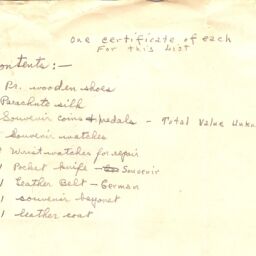 One certificate of each
For this List
ontents:—
Pr. wooden shoes
Parachute silk
Souvenir coins & medals — Total Value Unkn
Souvenir watches
Wristwatches for repair
1 Pocket knife — Souvenir
1 Leather Belt — German
1 souvenir bayonet
1 leather coat